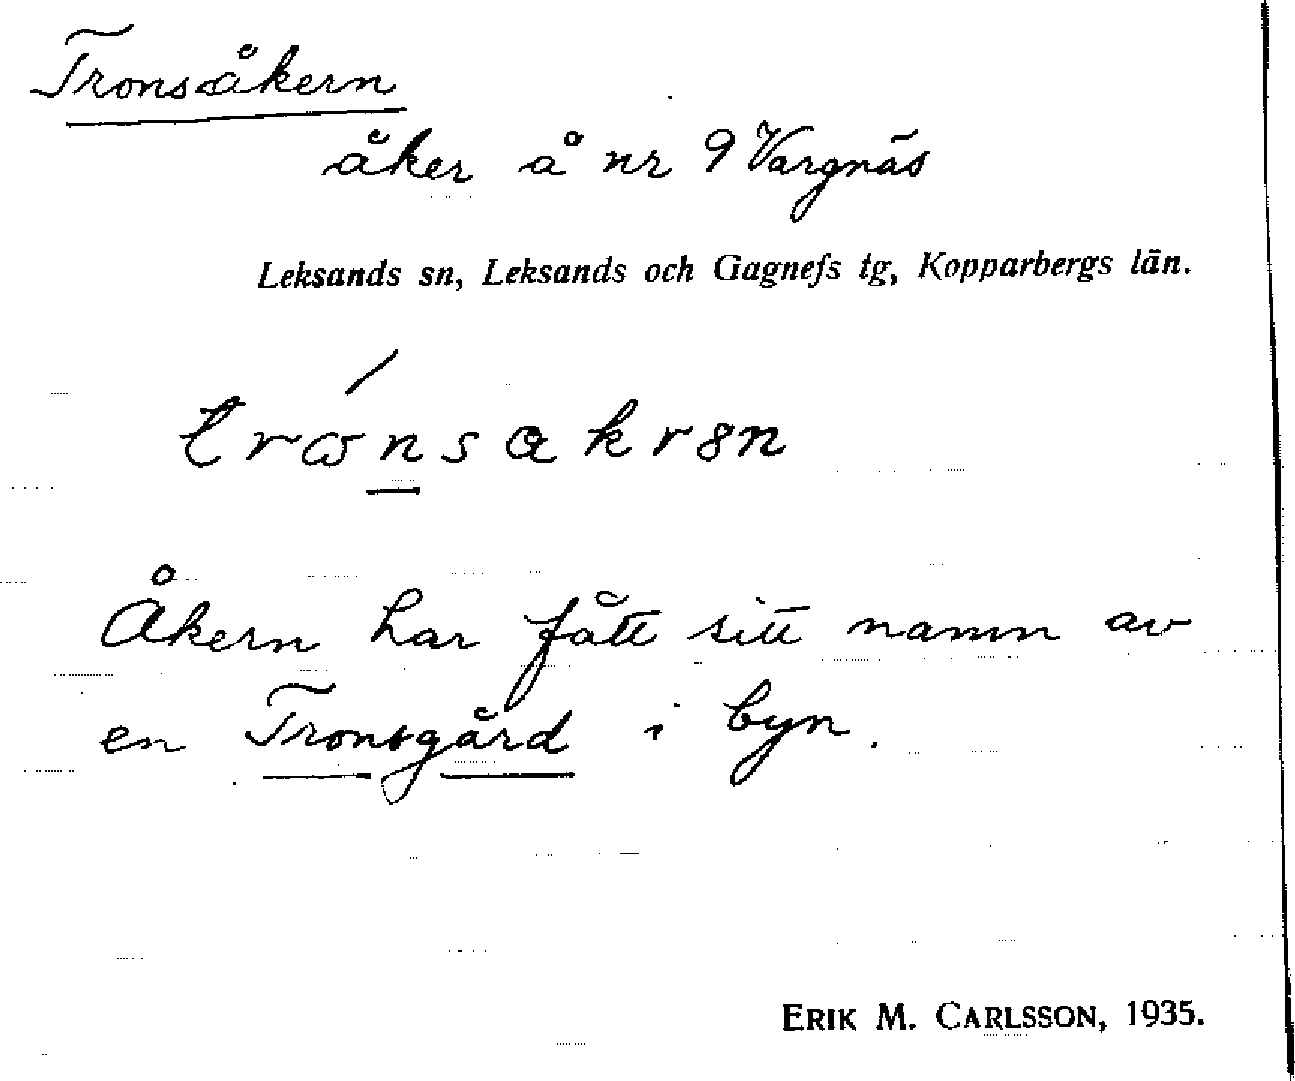 Tronsåkern
åker å nr 9 Vargnäs
Leksands sn, Leksands och Gagnefs tg, Kopparbergs län.
trωnsakrən
Åkern har fått sitt namn av
en Tronsgård i byn.
ERIK M. CARLSSON, 1935.